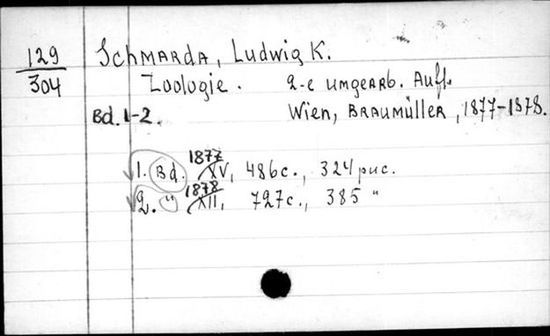 129 Schmarda, Ludwig K.
304 Zoologie. 2-e umgearb. Aufl.
Bd. 1-2. Wien, Braumüller, 1877-1878.
1877
1. Bd. XV, 486с., 324 рис.
1878
2. " XII, 727с., 385 "